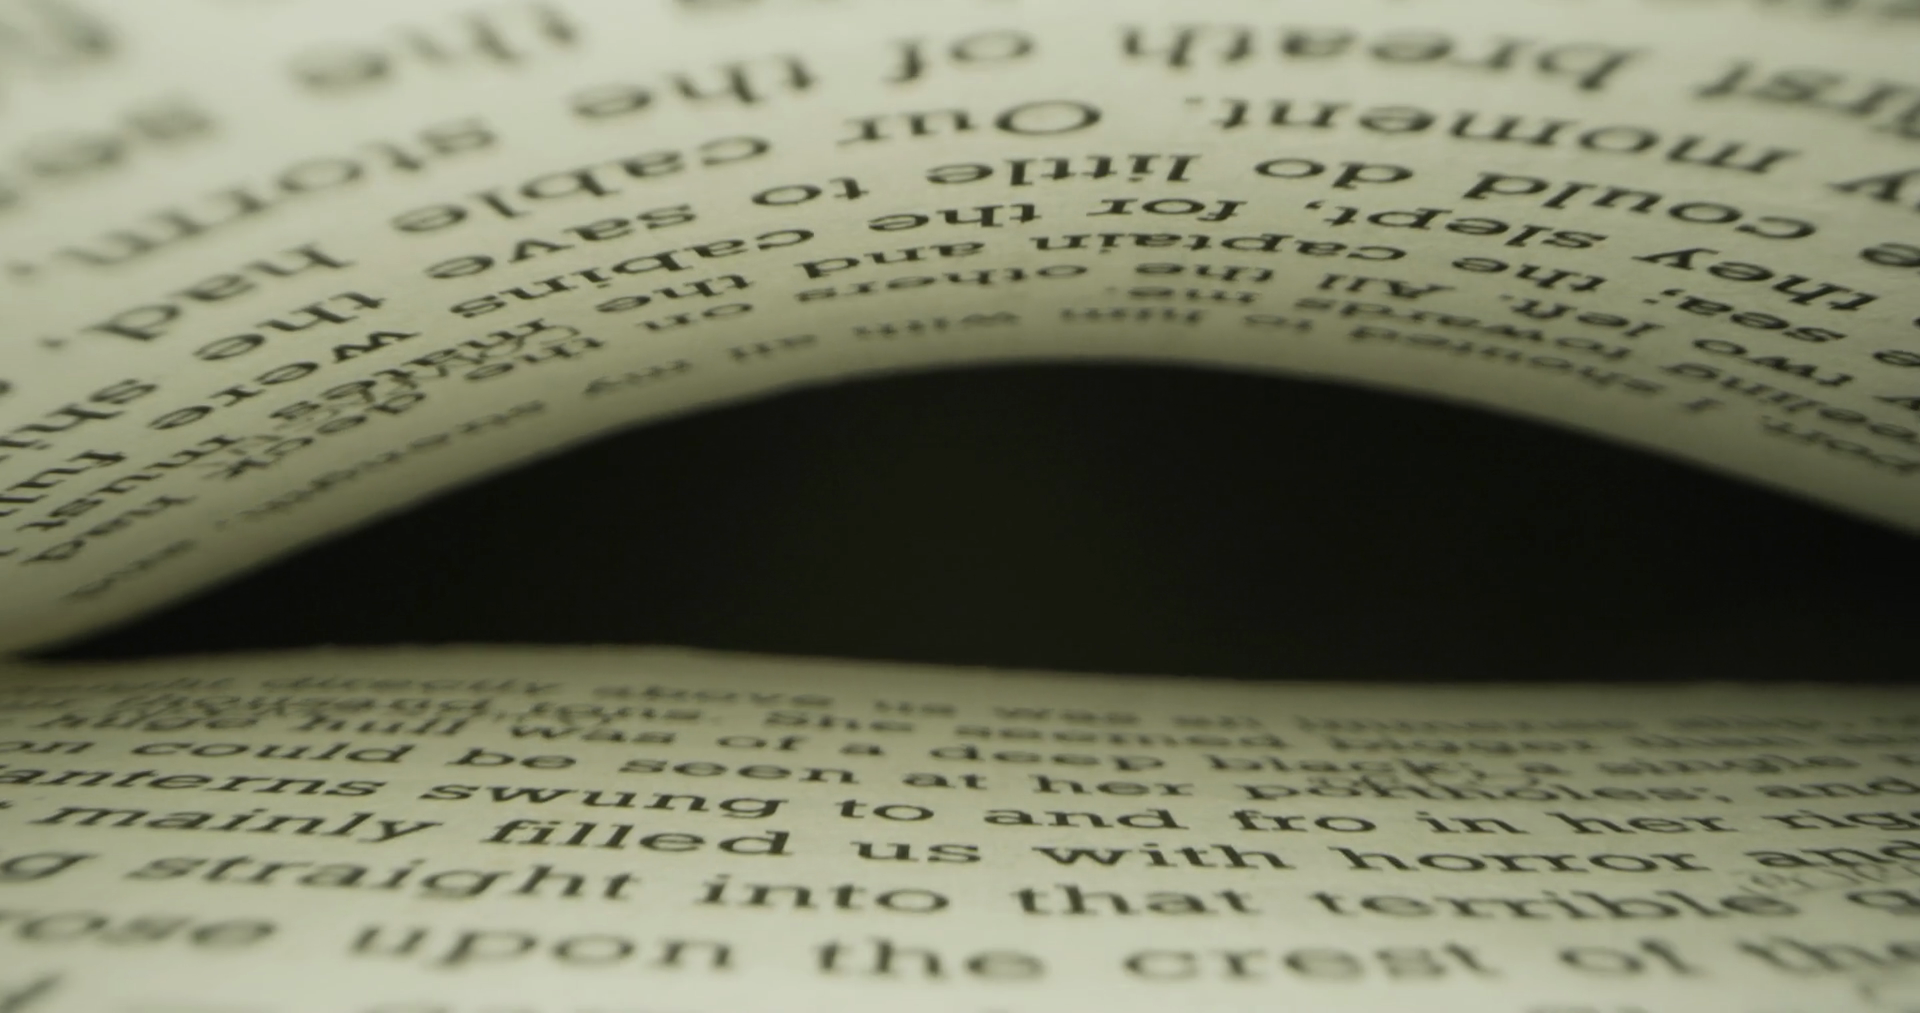 I shouted to him with all my strength, and
reeling towards me.
two left. All the others on the deck had
sea; the captain and the mates must
they slept, for the cabins were full
could do little to save the ship
moment. Our cable had,
first breath of the storm,
the
directly above us was an immense ship,
thousand tons. She seemed bigger than
huge hull was of a deep black; a single
could be seen at her portholes; and
lanterns swung to and fro in her
mainly filled us with horror and
straight into that terrible
rose upon the crest of the